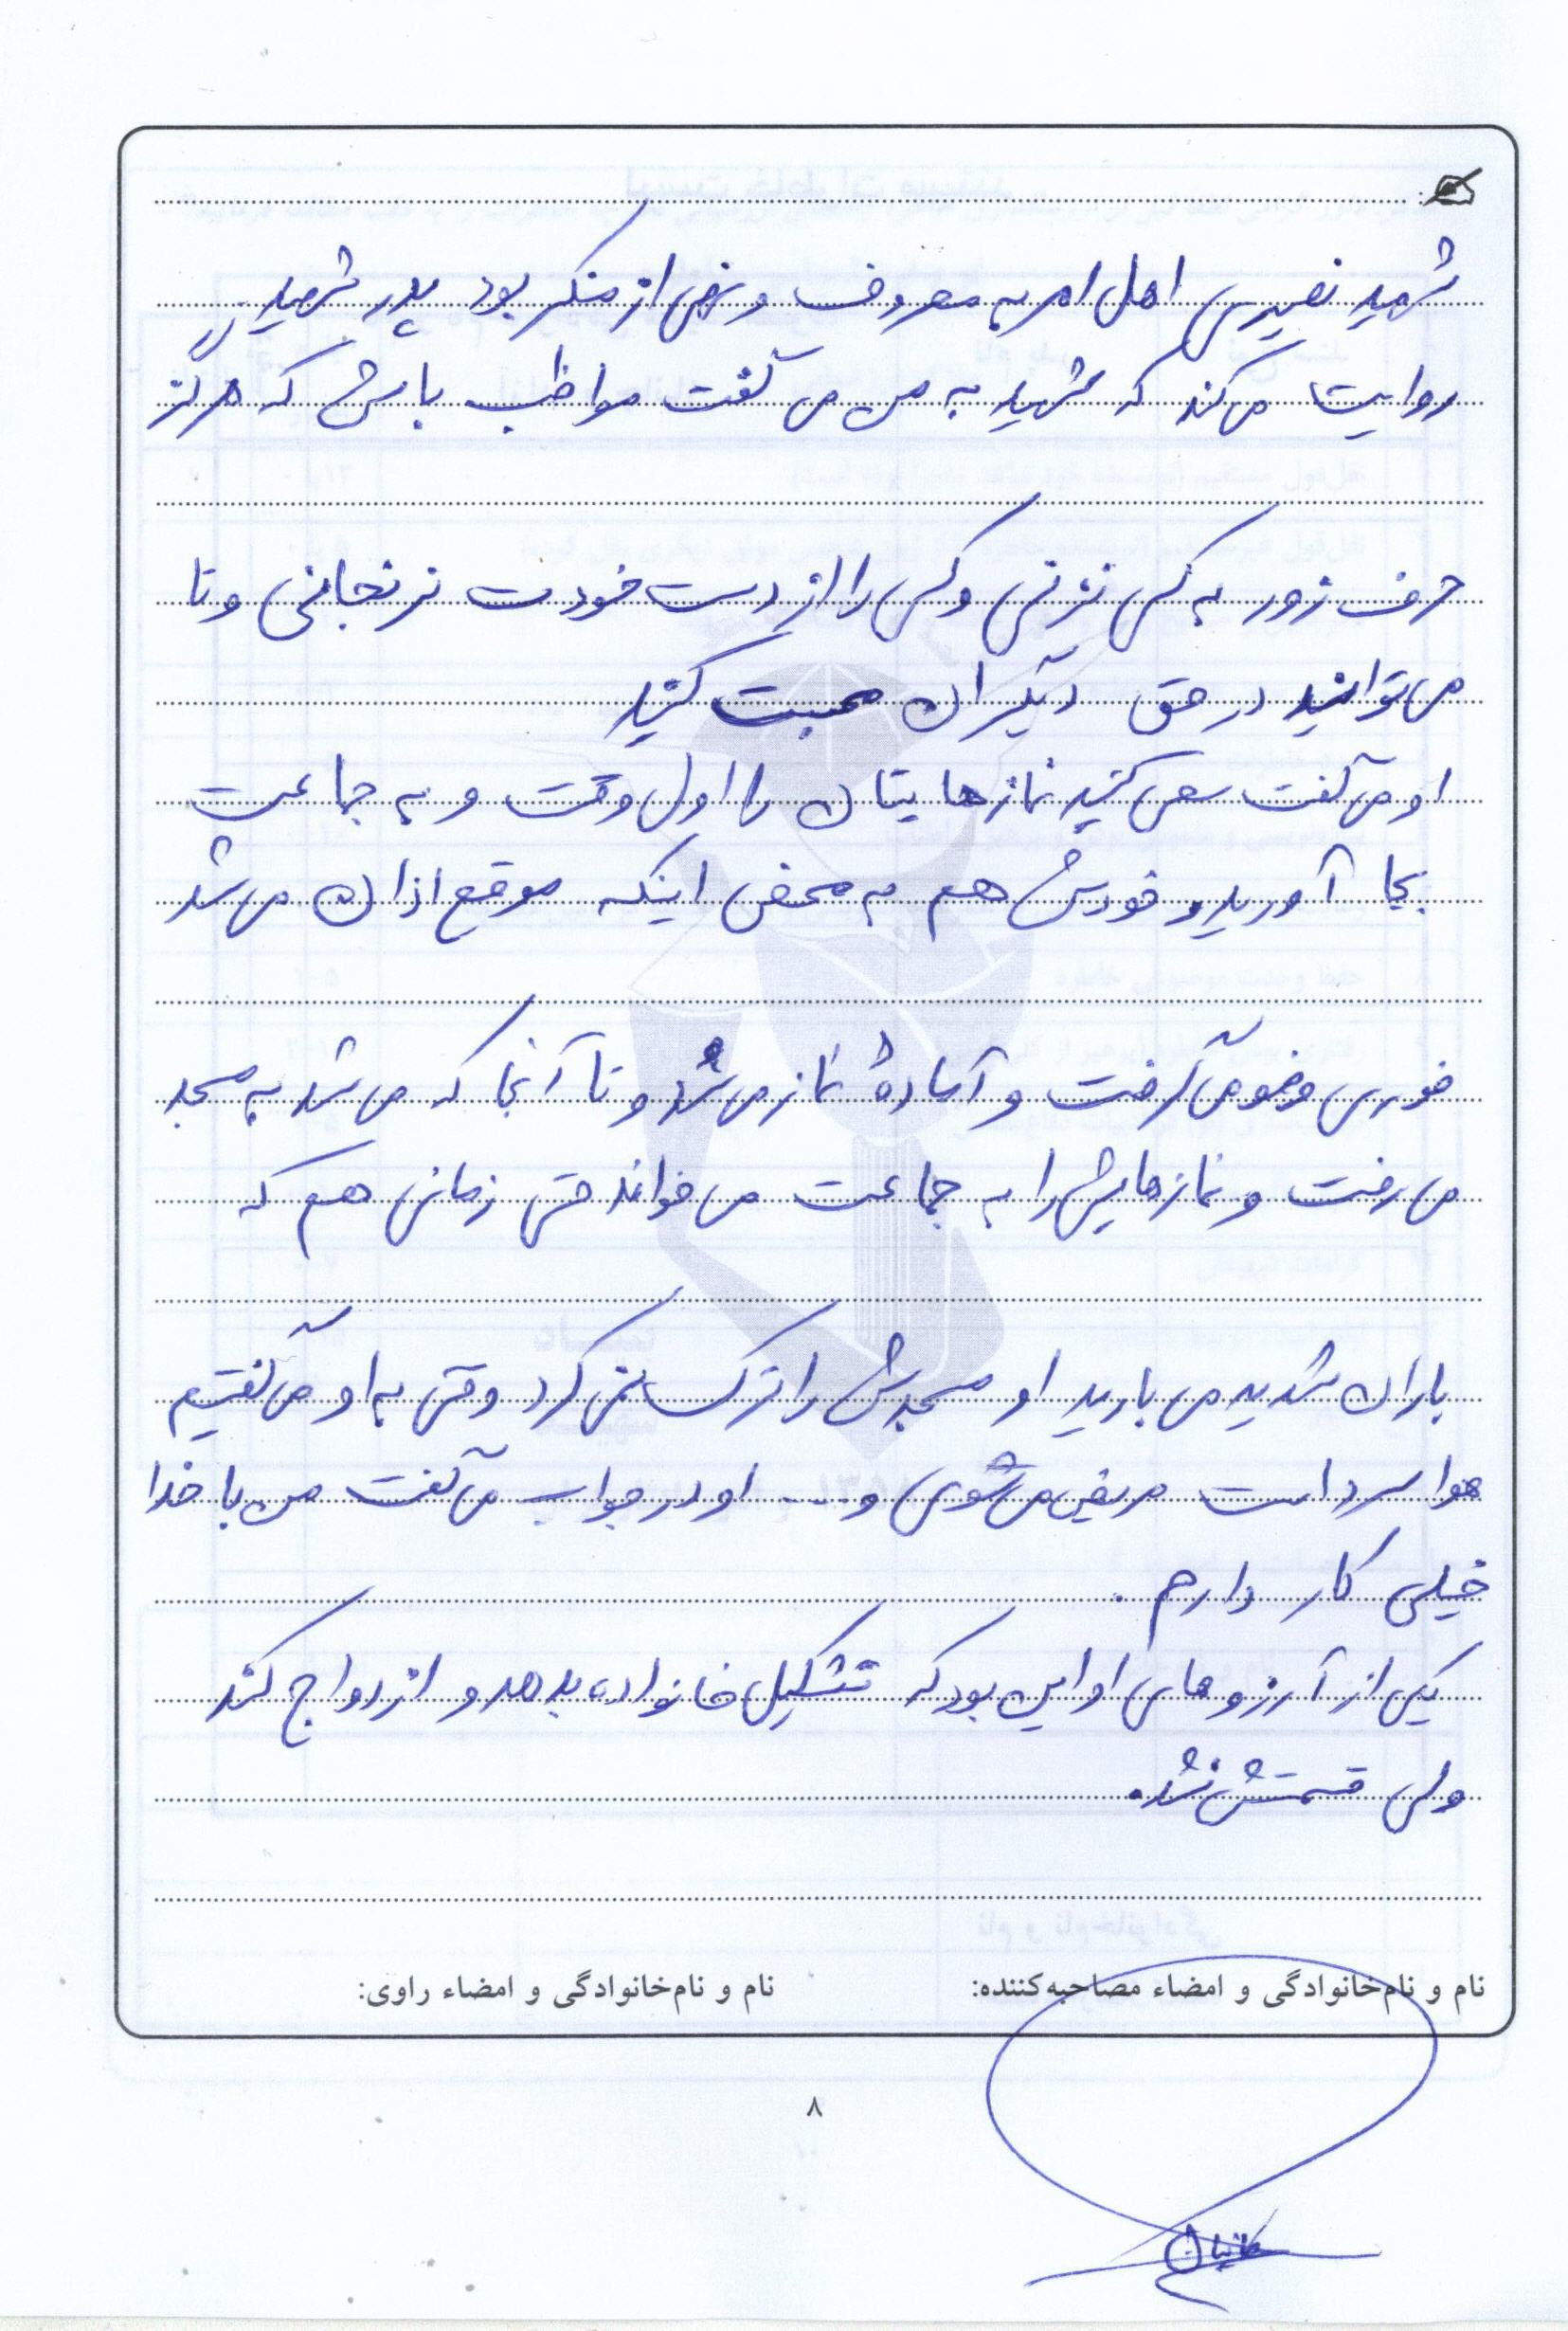 شهید نصیری اهل امر به معروف و نهی از منکر بود پدر شهید
روایت می کند که شهید به من می گفت مواظب باش که هرگز
حرف زور به کسی نزنی و کسی را از دست خودت نرنجانی و تا
می توانید در حق دیگران محبت کنید
او می گفت سعی کنید نمازهایتان را اول وقت و به جماعت
بجا آورید و خودش هم به محض اینکه موقع اذان می شد
فوری وضو می گرفت و آماده نماز می شد و تا آنجا که می شد به مسجد
می رفت و نمازهایش را به جماعت می خواند حتی زمانی هم که
باران شدید می بارید او مسجدش را ترک نمی کرد وقتی به او می گفتیم
هوا سرد است مریض می شوی و .... او در جواب می گفت من با خدا
خیلی کار دارم .
یکی از آرزوهای او این بود که تشکیل خانواده بدهد و ازدواج کند
ولی قسمتش نشد.
نام و نام‌خانوادگی و امضاء مصاحبه‌کننده: نام و نام‌خانوادگی و امضاء راوی:
۸